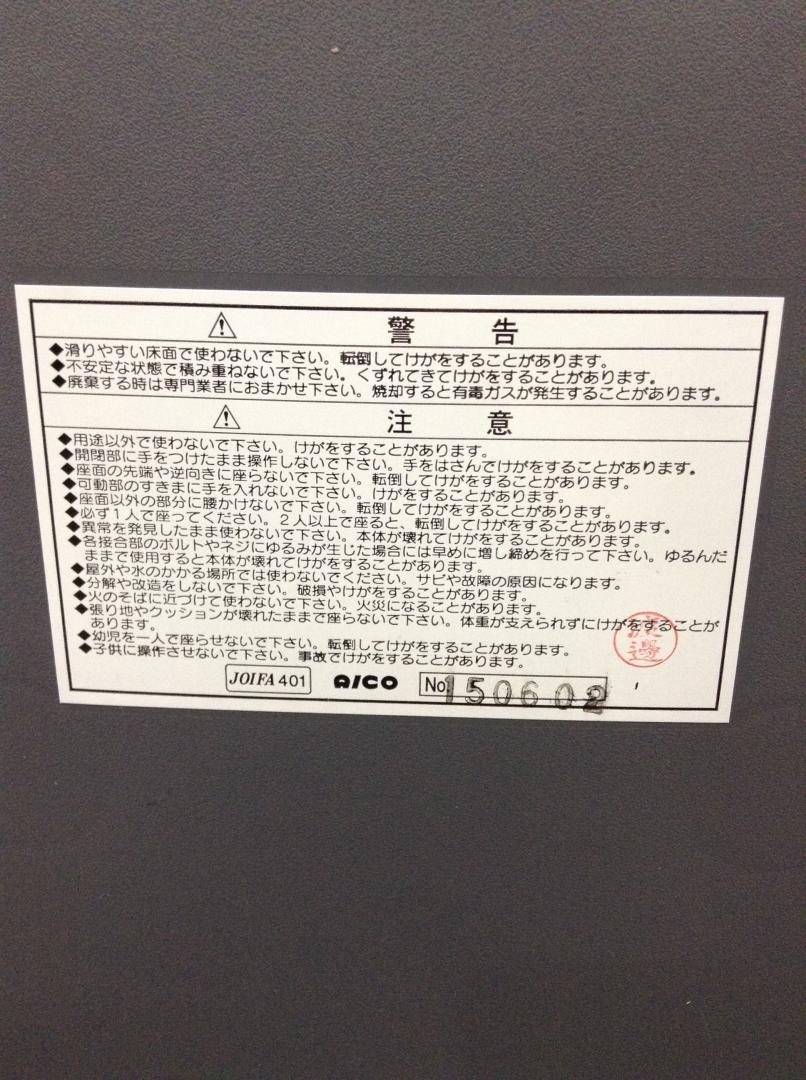 ⚠ 警告
◆滑りやすい床面で使わないで下さい。転倒してけがをすることがあります。
◆不安定な状態で積み重ねないで下さい。くずれてきてけがをすることがあります。
◆廃棄する時は専門業者におまかせ下さい。焼却すると有毒ガスが発生することがあります。
⚠ 注意
◆用途以外で使わないで下さい。けがをすることがあります。
◆開閉部に手をつけたまま操作しないで下さい。手をはさんでけがをすることがあります。
◆座面の先端や逆向きに座らないで下さい。転倒してけがをすることがあります。
◆可動部のすきまに手を入れないで下さい。けがをすることがあります。
◆座面以外の部分に腰かけないで下さい。転倒してけがをすることがあります。
◆必ず1人で座ってください。2人以上で座ると、転倒してけがをすることがあります。
◆異常を発見したまま使わないで下さい。本体が壊れてけがをすることがあります。
◆各接合部のボルトやネジにゆるみが生じた場合には早めに増し締めを行って下さい。ゆるんだ
ままで使用すると本体が壊れてけがをすることがあります。
◆屋外や水のかかる場所では使わないでください。サビや故障の原因になります。
◆分解や改造をしないで下さい。破損やけがをすることがあります。
◆火のそばに近づけて使わないで下さい。火災になることがあります。
◆張り地やクッションが壊れたままで座らないで下さい。体重が支えられずにけがをすることが
あります。
◆幼児を一人で座らせないで下さい。転倒してけがをすることがあります。
◆子供に操作させないで下さい。事故でけがをすることがあります。
JOIFA 401 AICO No. 150602